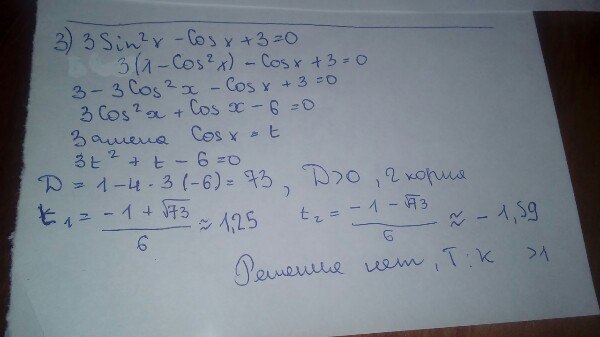 3) 3 Sin²x - Cos x + 3 = 0
3(1 - Cos²x) - Cos x + 3 = 0
3 - 3 Cos²x - Cos x + 3 = 0
3 Cos²x + Cos x - 6 = 0
Замена Cos x = t
3t² + t - 6 = 0
D = 1 - 4 · 3 (-6) = 73, D>0, 2 корня
t₁ = (-1 + √73)/6 ≈ 1,25 t₂ = (-1 - √73)/6 ≈ -1,59
Решения нет, Т:к >1